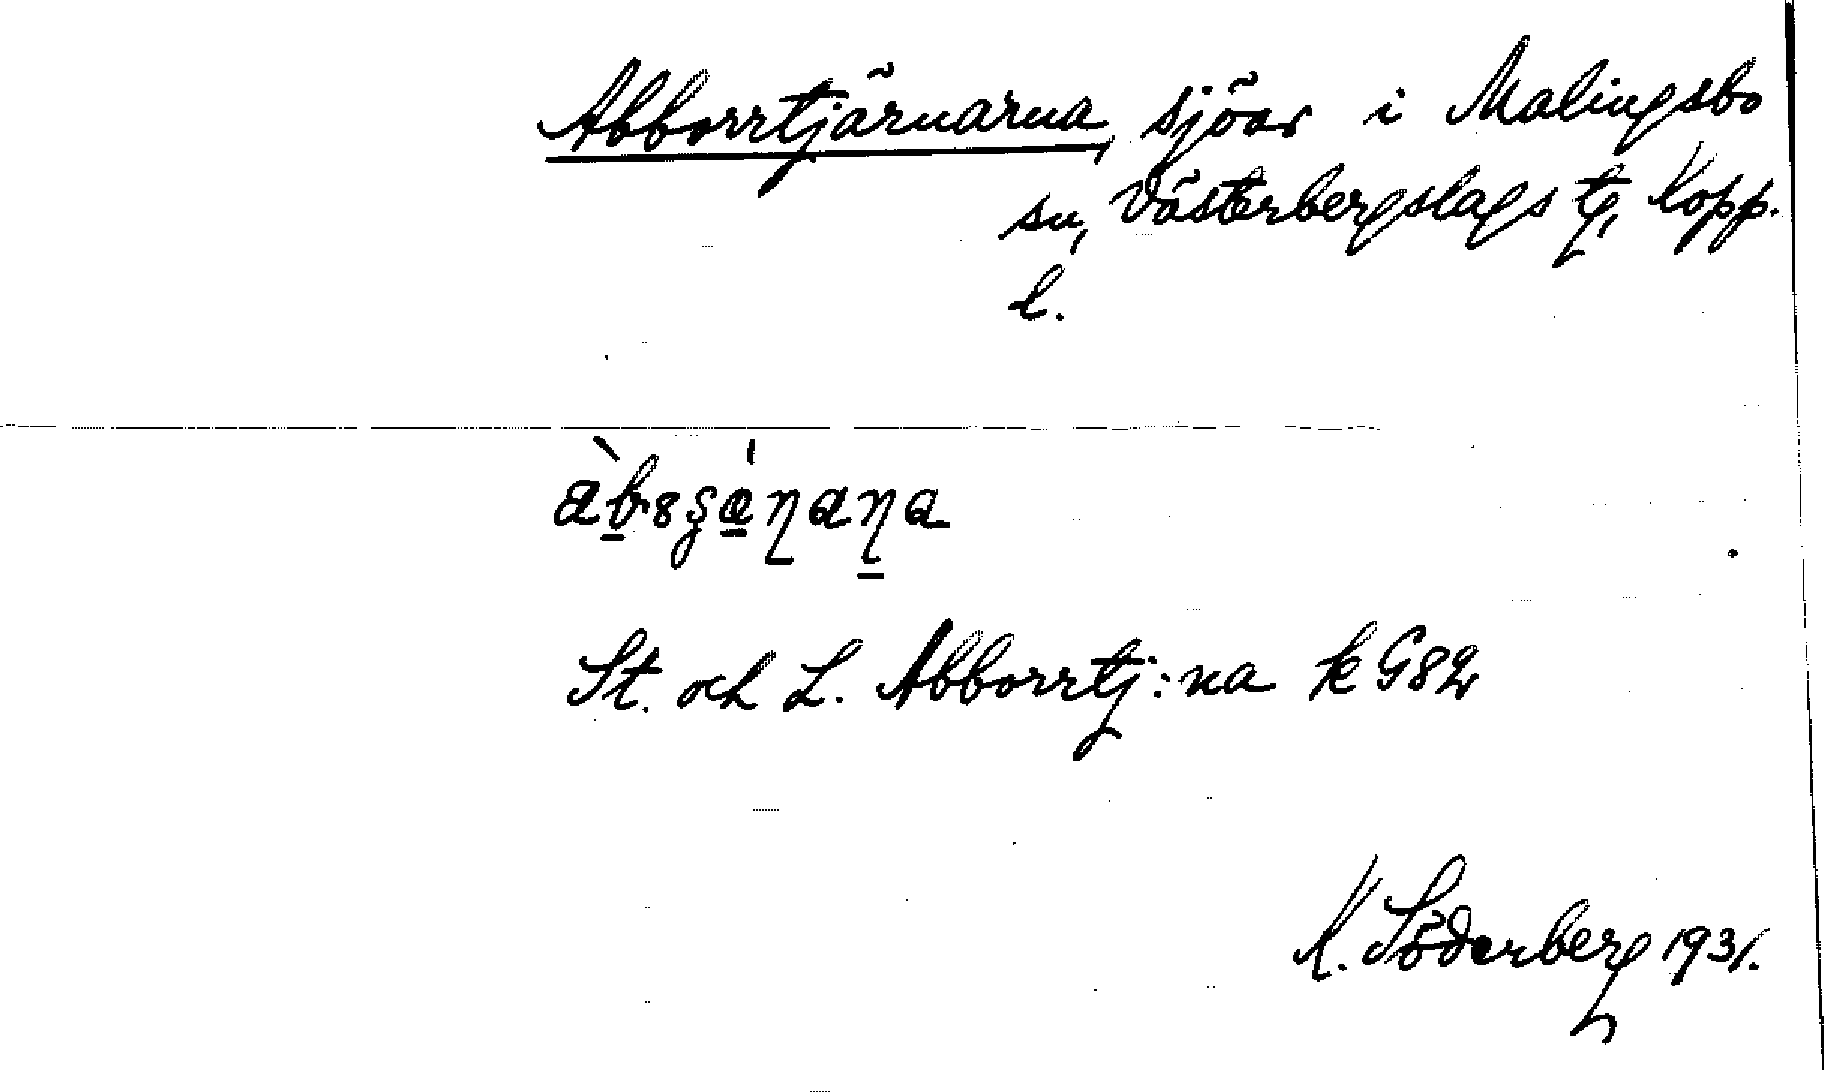 Abborrtjärnarna, sjöar i Malingsbo
sn, Västerbergslags tg, Kopp.
l.
St. och L. Abborrtj:na k G82
K. Söderberg 1931.